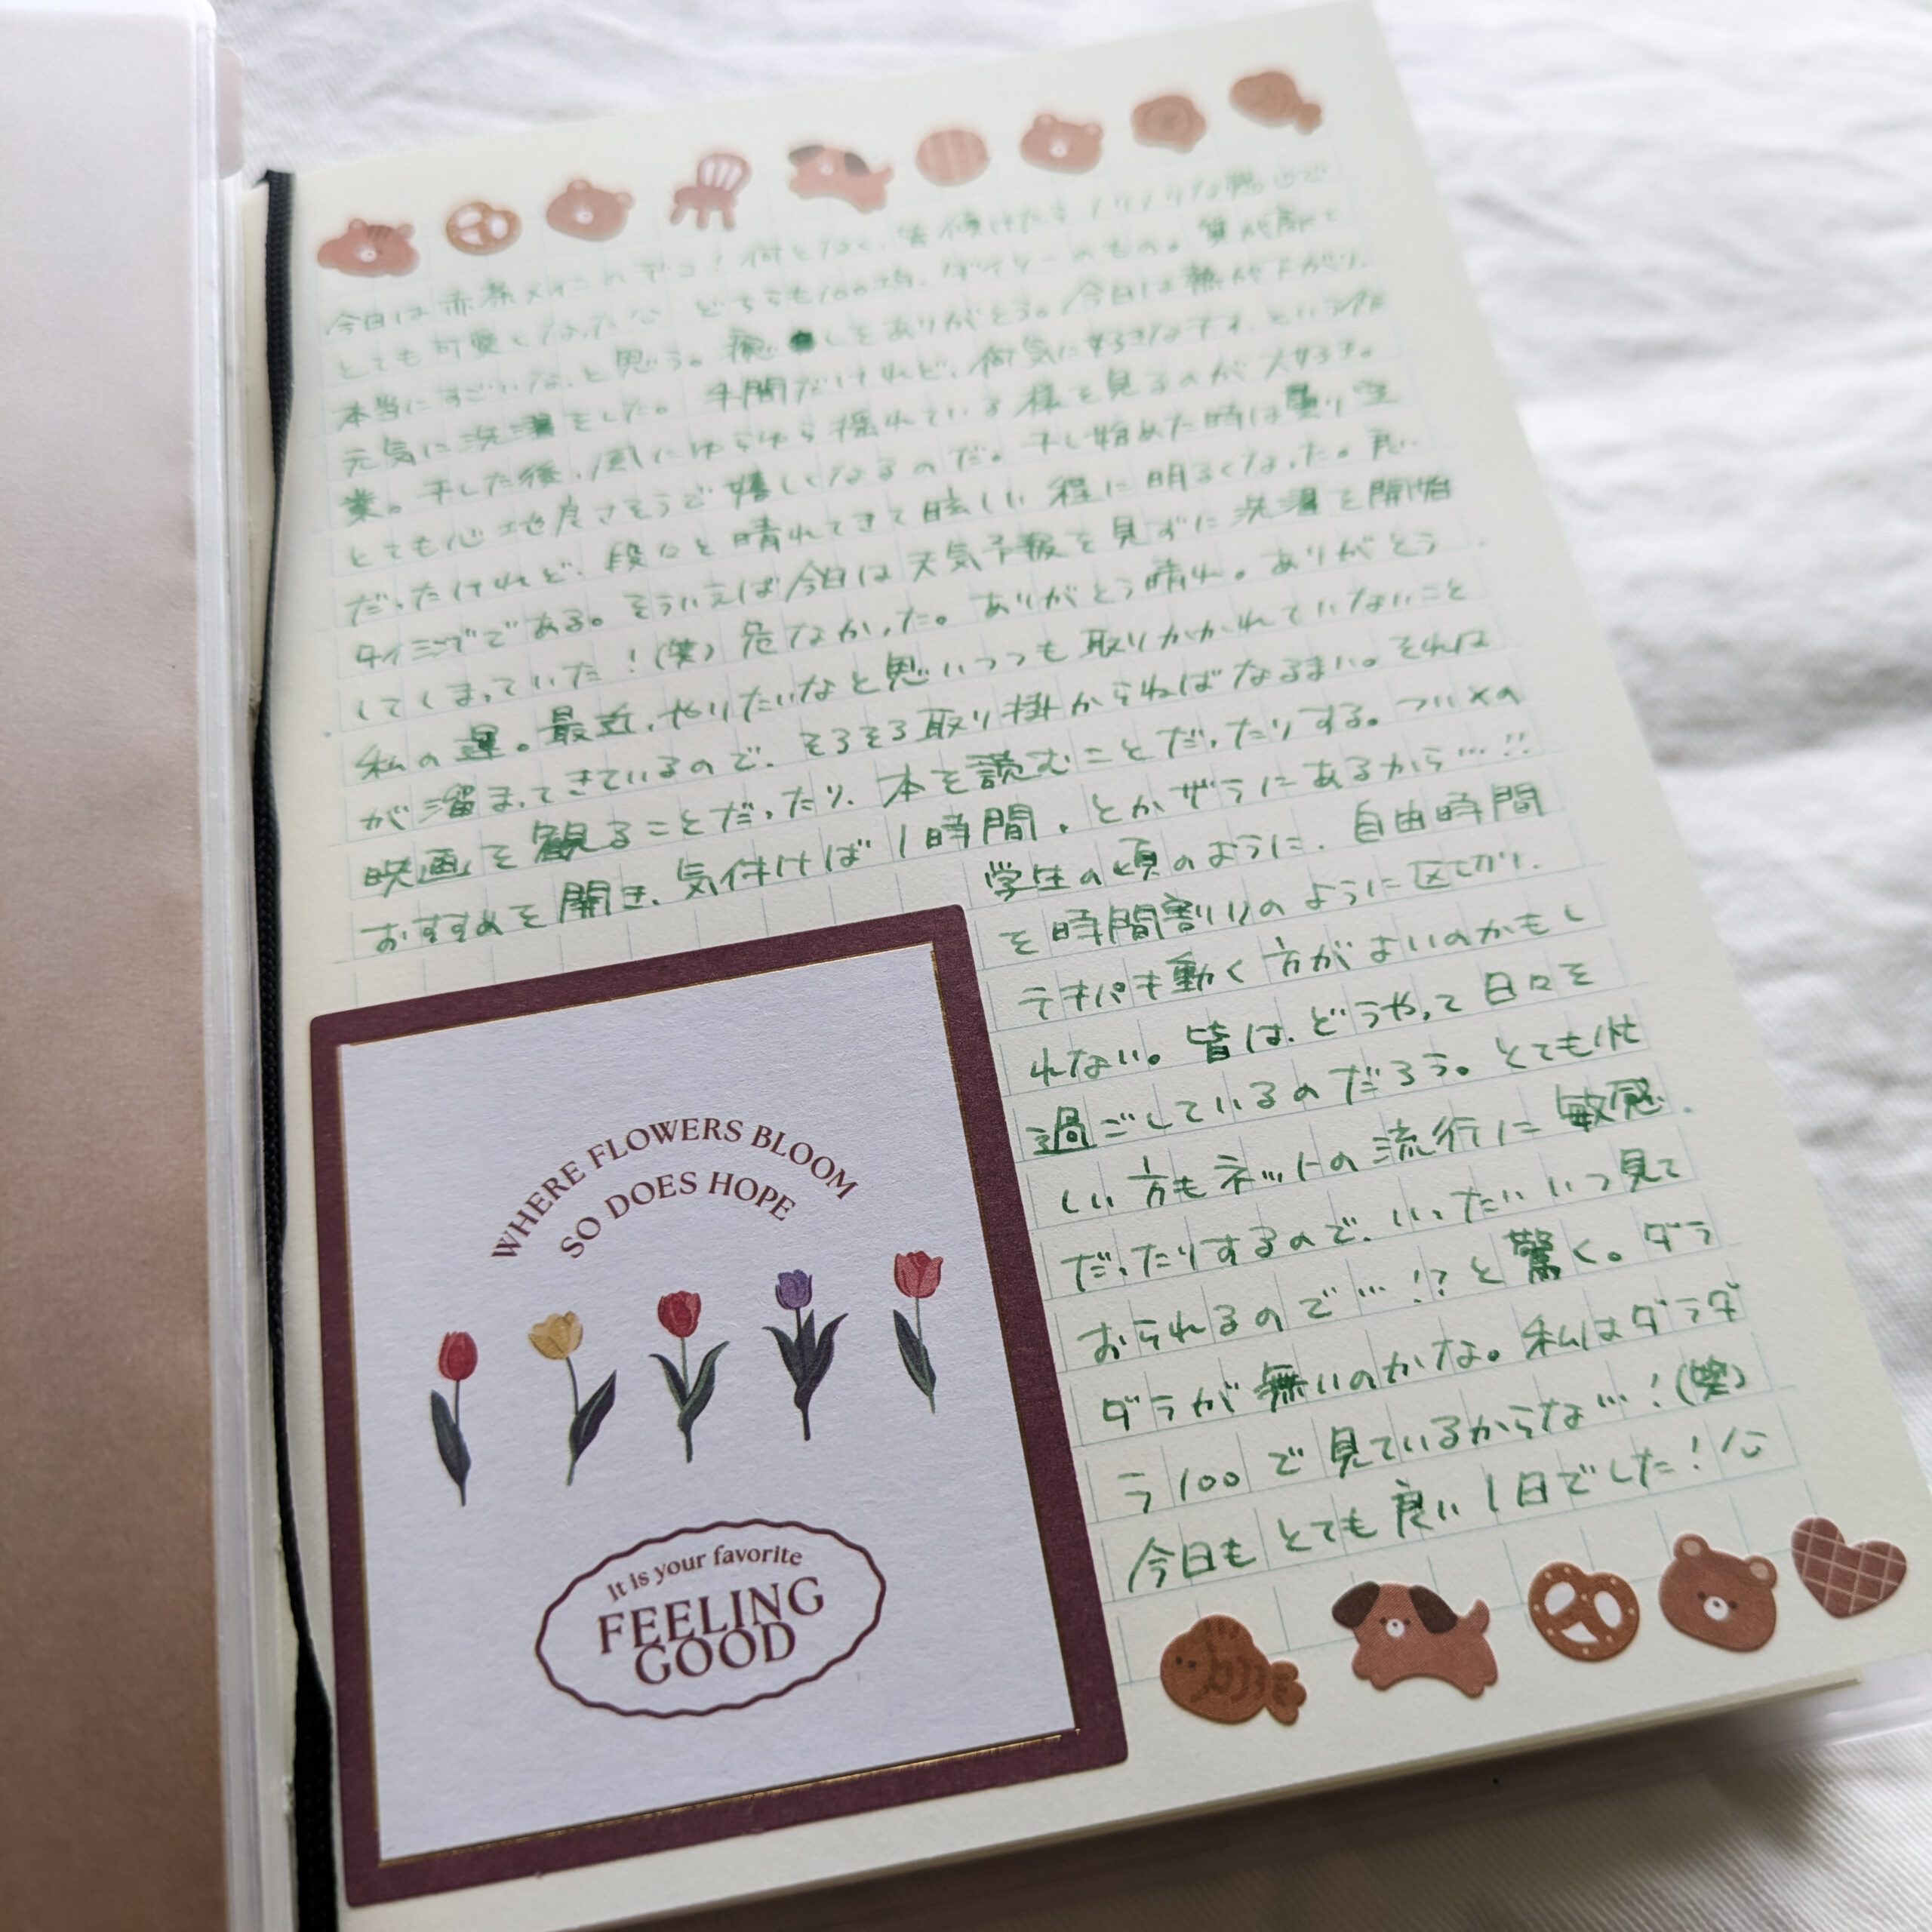 今日は赤茶メインのデコ！何となく、皆傾けたらノリノリな感じで
とても可愛くなったな どちらも100均、ダイソーのもの。質が高くて
本当にすごいな、と思う。癒しをありがとう。今日は熱が下がり、
元気に洗濯をした。手間だけれど、何気に好きなまである、という作
業。干した後、風にゆらゆら揺れている様を見るのが大好き。
とても心地良さそうで嬉しくなるのだ。干し始めた時は曇り空
だったけれど、段々と晴れてきて眩しい程に明るくなった。良い
タイミングである。そういえば今日は天気予報を見ずに洗濯を開始
してしまっていた！(笑)危なかった。ありがとう晴れ。ありがとう
私の運。最近、やりたいなと思いつつも取りかかれていないこと
が溜まってきているので、そろそろ取り掛からねばなるまい。それは
映画を観ることだったり、本を読むことだったりする。ついXの
おすすめを開き、気付けば1時間、とかザラにあるから…!!
学生の頃のように、自由時間
を時間割りのように区切り、
テキパキ動く方がよいのかもし
れない。皆は、どうやって日々を
過ごしているのだろう。とても忙
しい方もネットの流行に敏感
だったりするので、いったいいつ見て
おられるので…!?と驚く。ダラ
ダラが無いのかな。私はダラダ
ラ100で見ているからな…！(笑)
今日もとても良い1日でした！
WHERE FLOWERS BLOOM
SO DOES HOPE
It is your favorite
FEELING
GOOD